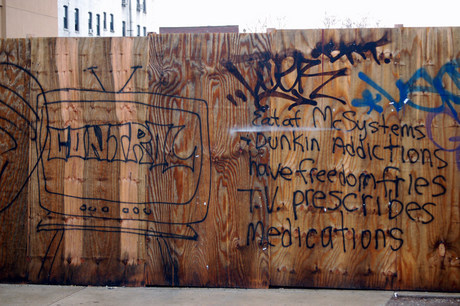 CONTROL
Eat at McSystems
+ Dunkin Addictions
have freedom fries
T.V. prescribes
Medications